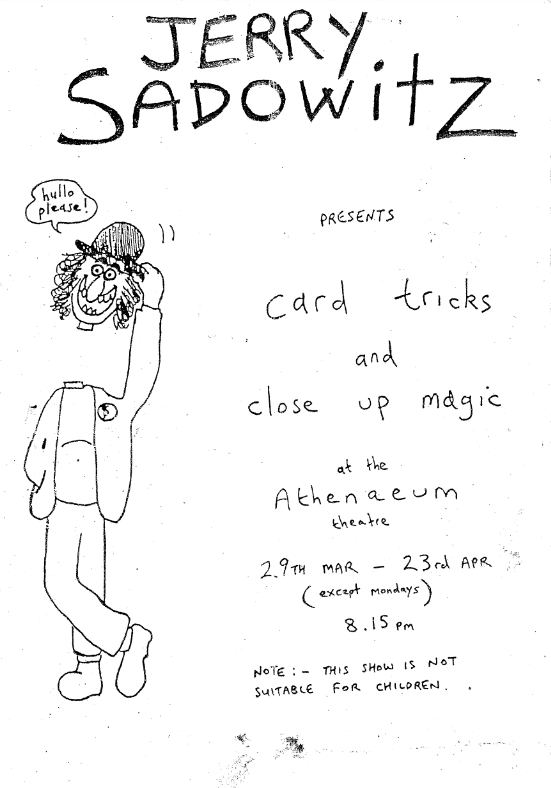 JERRY
SADOWITZ
hullo
please!
PRESENTS
card tricks
and
close up magic
at the
Athenaeum
theatre
29TH MAR - 23rd APR
(except mondays)
8.15 pm
NOTE:- THIS SHOW IS NOT
SUITABLE FOR CHILDREN.